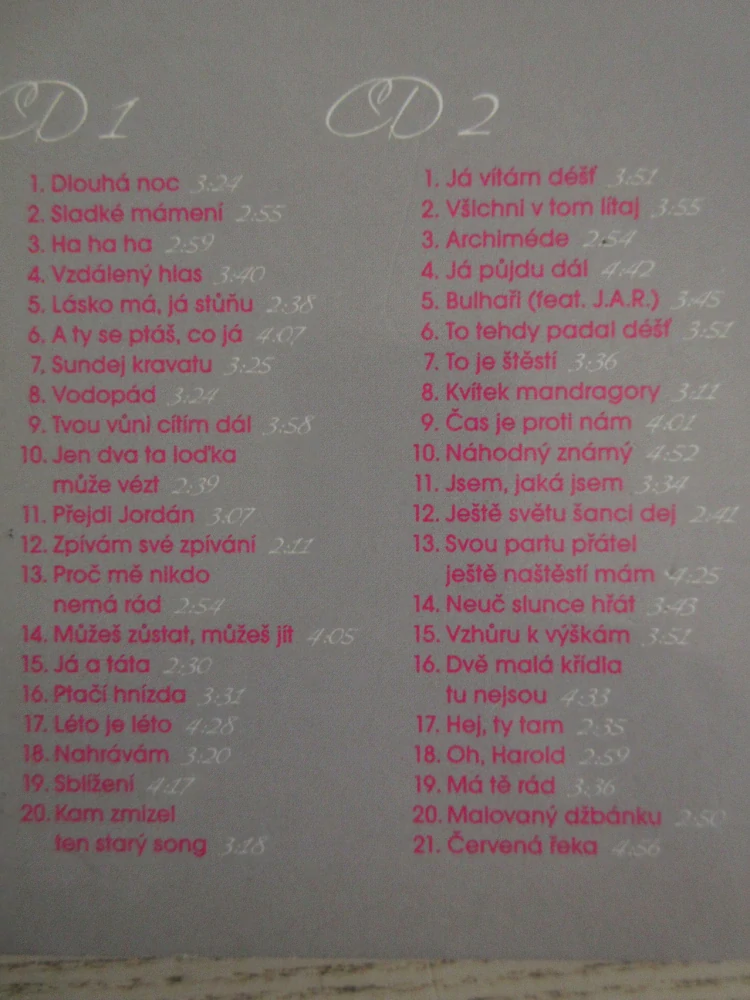 CD 1
1. Dlouhá noc 3:24
2. Sladké mámení 2:55
3. Ha ha ha 2:59
4. Vzdálený hlas 3:40
5. Lásko má, já stůňu 2:38
6. A ty se ptáš, co já 4:07
7. Sundej kravatu 3:25
8. Vodopád 3:24
9. Tvou vůni cítím dál 3:58
10. Jen dva ta loďka
může vézt 2:39
11. Přejdi Jordán 3:07
12. Zpívám své zpívání 2:11
13. Proč mě nikdo
nemá rád 2:54
14. Můžeš zůstat, můžeš jít 4:05
15. Já a táta 2:30
16. Ptačí hnízda 3:31
17. Léto je léto 4:28
18. Nahrávám 3:20
19. Sblížení 4:17
20. Kam zmizel
ten starý song 3:18
CD 2
1. Já vítám déšť 3:51
2. Všichni v tom lítaj 3:55
3. Archiméde 2:54
4. Já půjdu dál 4:42
5. Bulhaři (feat. J.A.R.) 3:45
6. To tehdy padal déšť 3:51
7. To je štěstí 3:36
8. Kvítek mandragory 3:11
9. Čas je proti nám 4:01
10. Náhodný známý 4:52
11. Jsem, jaká jsem 3:34
12. Ještě světu šanci dej 2:41
13. Svou partu přátel
ještě naštěstí mám 4:25
14. Neuč slunce hřát 3:43
15. Vzhůru k výškám 3:51
16. Dvě malá křídla
tu nejsou 4:33
17. Hej, ty tam 2:35
18. Oh, Harold 2:59
19. Má tě rád 3:36
20. Malovaný džbánku 2:50
21. Červená řeka 4:56